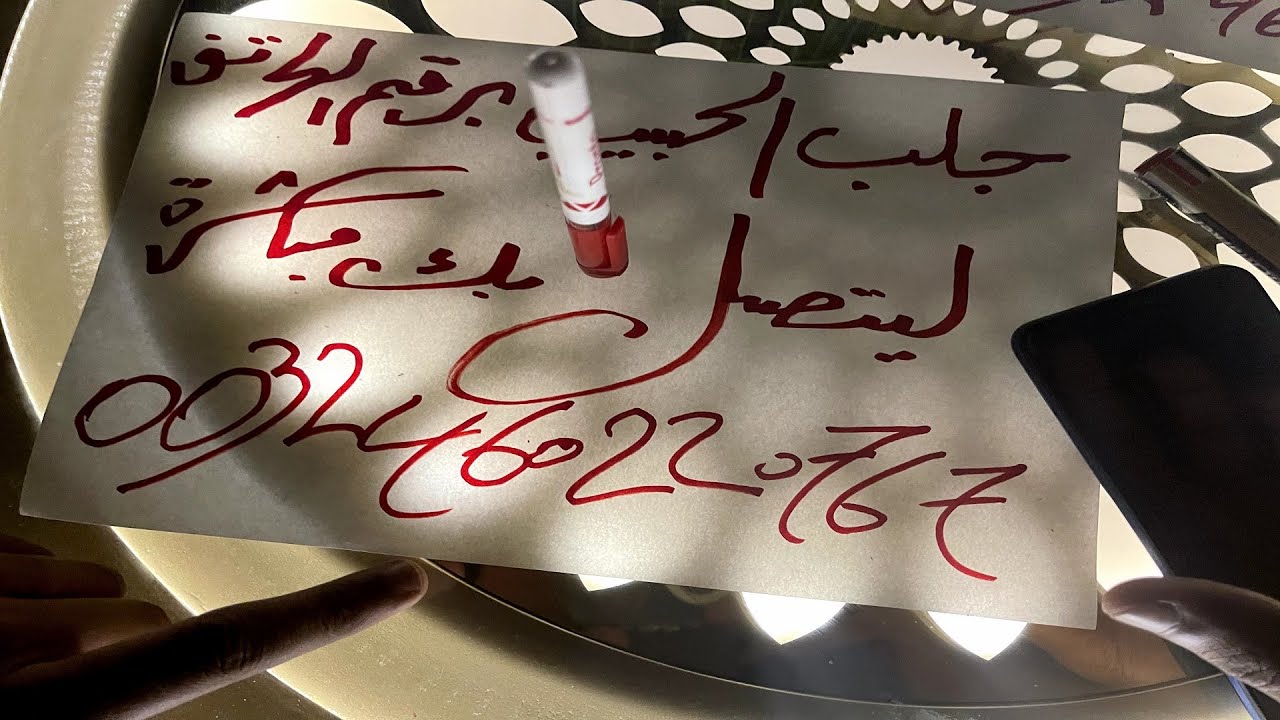 جلب الحبيب برقم الهاتف
ليتصل بك مباشرة
0032460220767